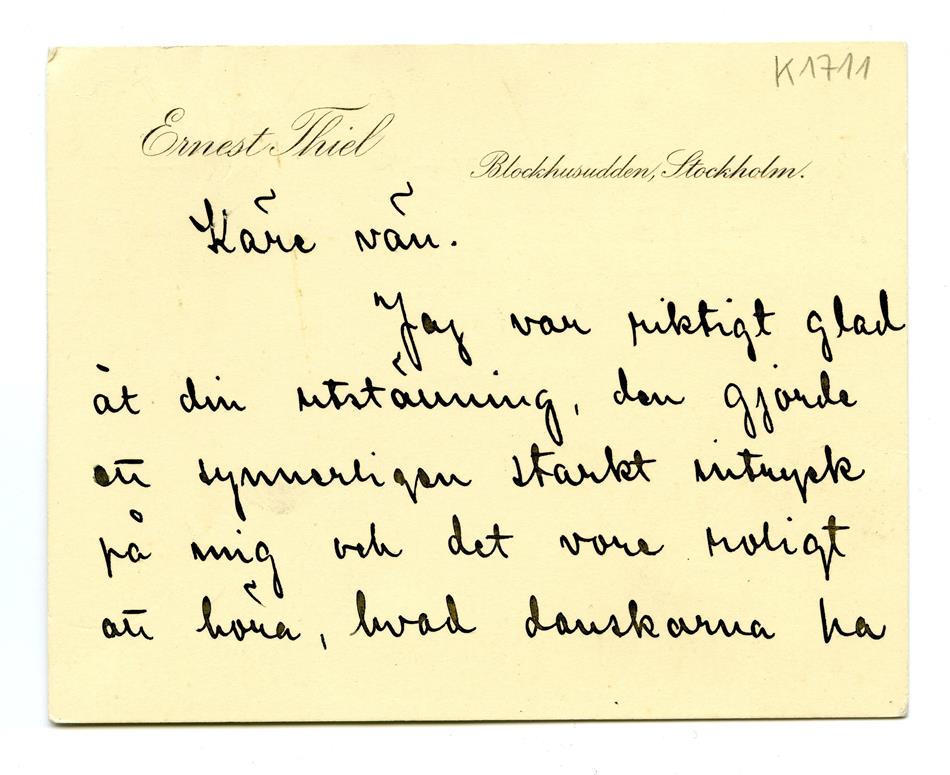 K1711
Ernest Thiel
Blockhusudden, Stockholm.
Käre vän.
Jag var riktigt glad
åt din utställning, den gjorde
ett synnerligen starkt intryck
på mig och det vore roligt
att höra, hvad danskarna ha